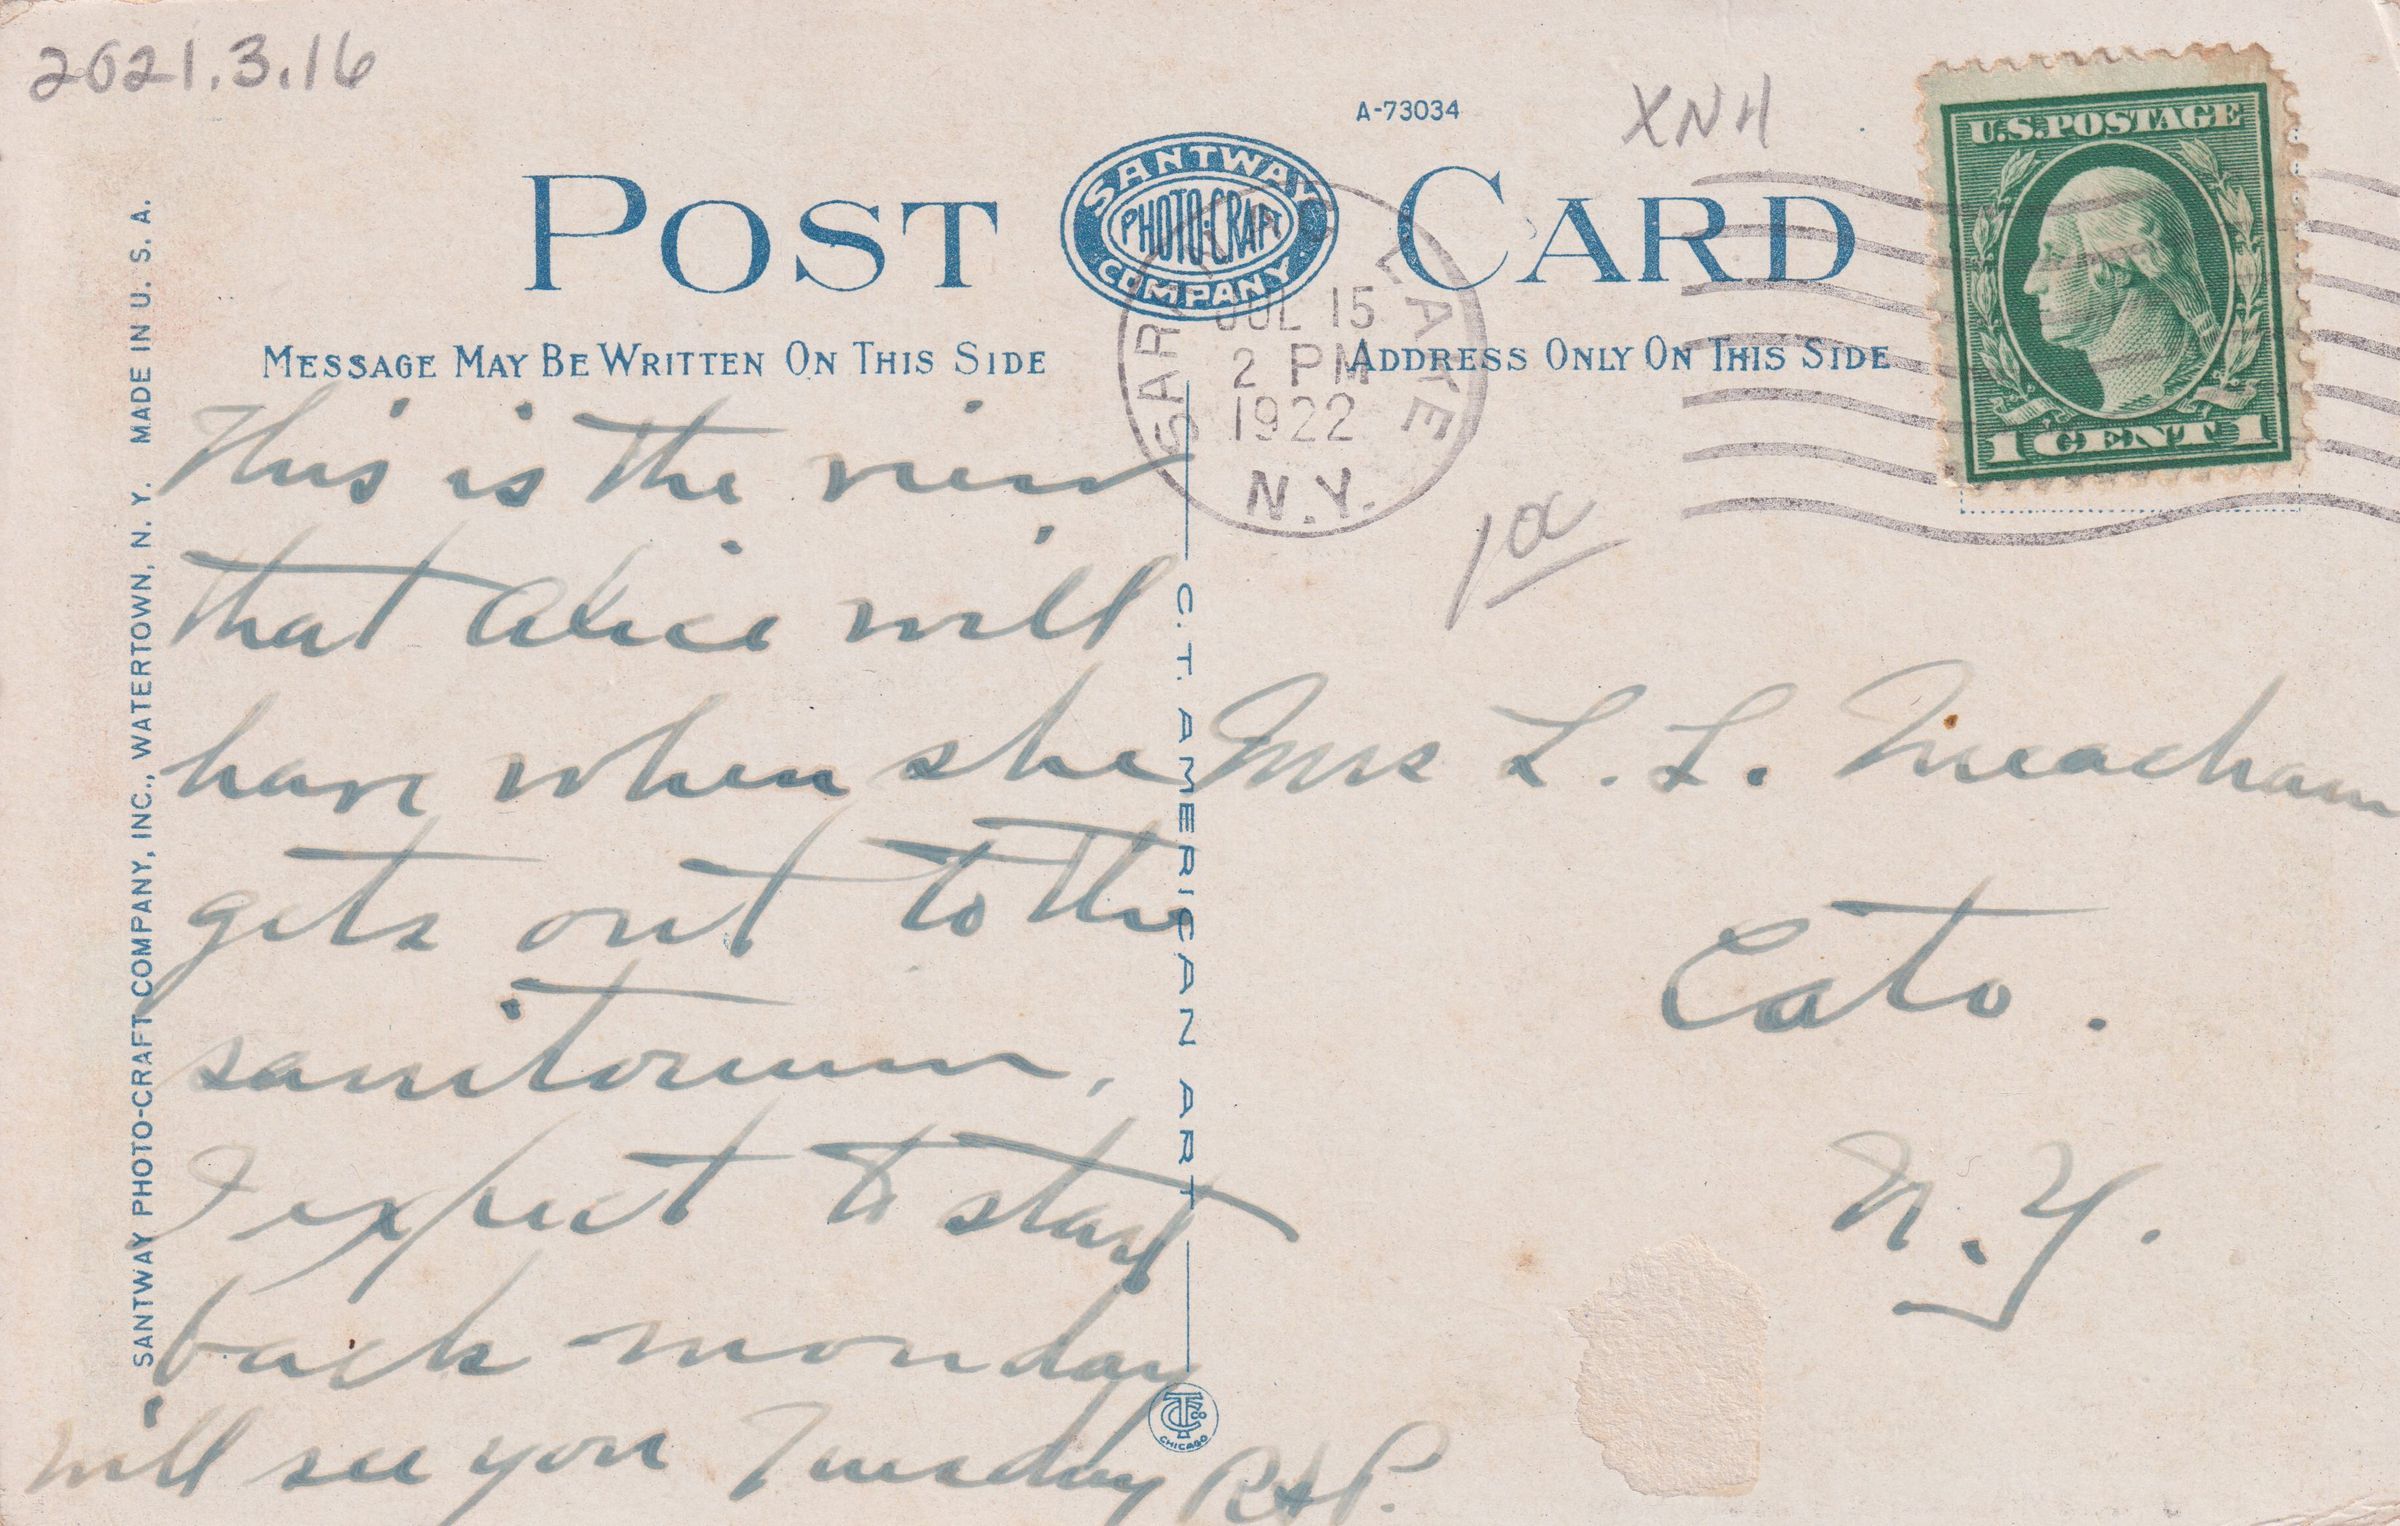 2021.3.16
A-73034
XNH
U.S. POSTAGE
1 CENT 1
POST CARD
SANTWAY
PHOTO-CRAFT
COMPANY.
SARANAC LAKE
JUL 15
2 PM
1922
N.Y.
MESSAGE MAY BE WRITTEN ON THIS SIDE
ADDRESS ONLY ON THIS SIDE
SANTWAY PHOTO-CRAFT COMPANY, INC., WATERTOWN, N. Y. MADE IN U. S. A.
This is the view
that Alice will
have when she
gets out to the
sanitorium,
I expect to start
back monday
will see you Tuesday
C. T. AMERICAN ART
CT CO
CHICAGO
Mrs L. L. Meacham
Cato.
N.Y.